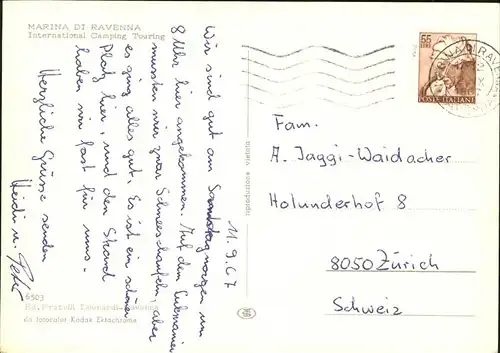 MARINA DI RAVENNA
International Camping Touring
11.9.67
Wir sind gut am Samstagmorgen um
8 Uhr hier angekommen. Auf dem Lukmanier
mussten wir zwar Schneeschaufeln, aber
es ging alles gut. Es ist ein schöner
Platz hier, und den Strand
haben wir fast für uns.
Herzliche Grüsse senden
Heidi u. Peter
6503
Ed. Fratelli Leonardi - Ravenna
da fotocolor Kodak Ektachrome
riproduzione vietata
55
LIRE
POSTE ITALIANE
Fam.
A. Jaggi-Waidacher
Holunderhof 8
8050 Zürich
Schweiz